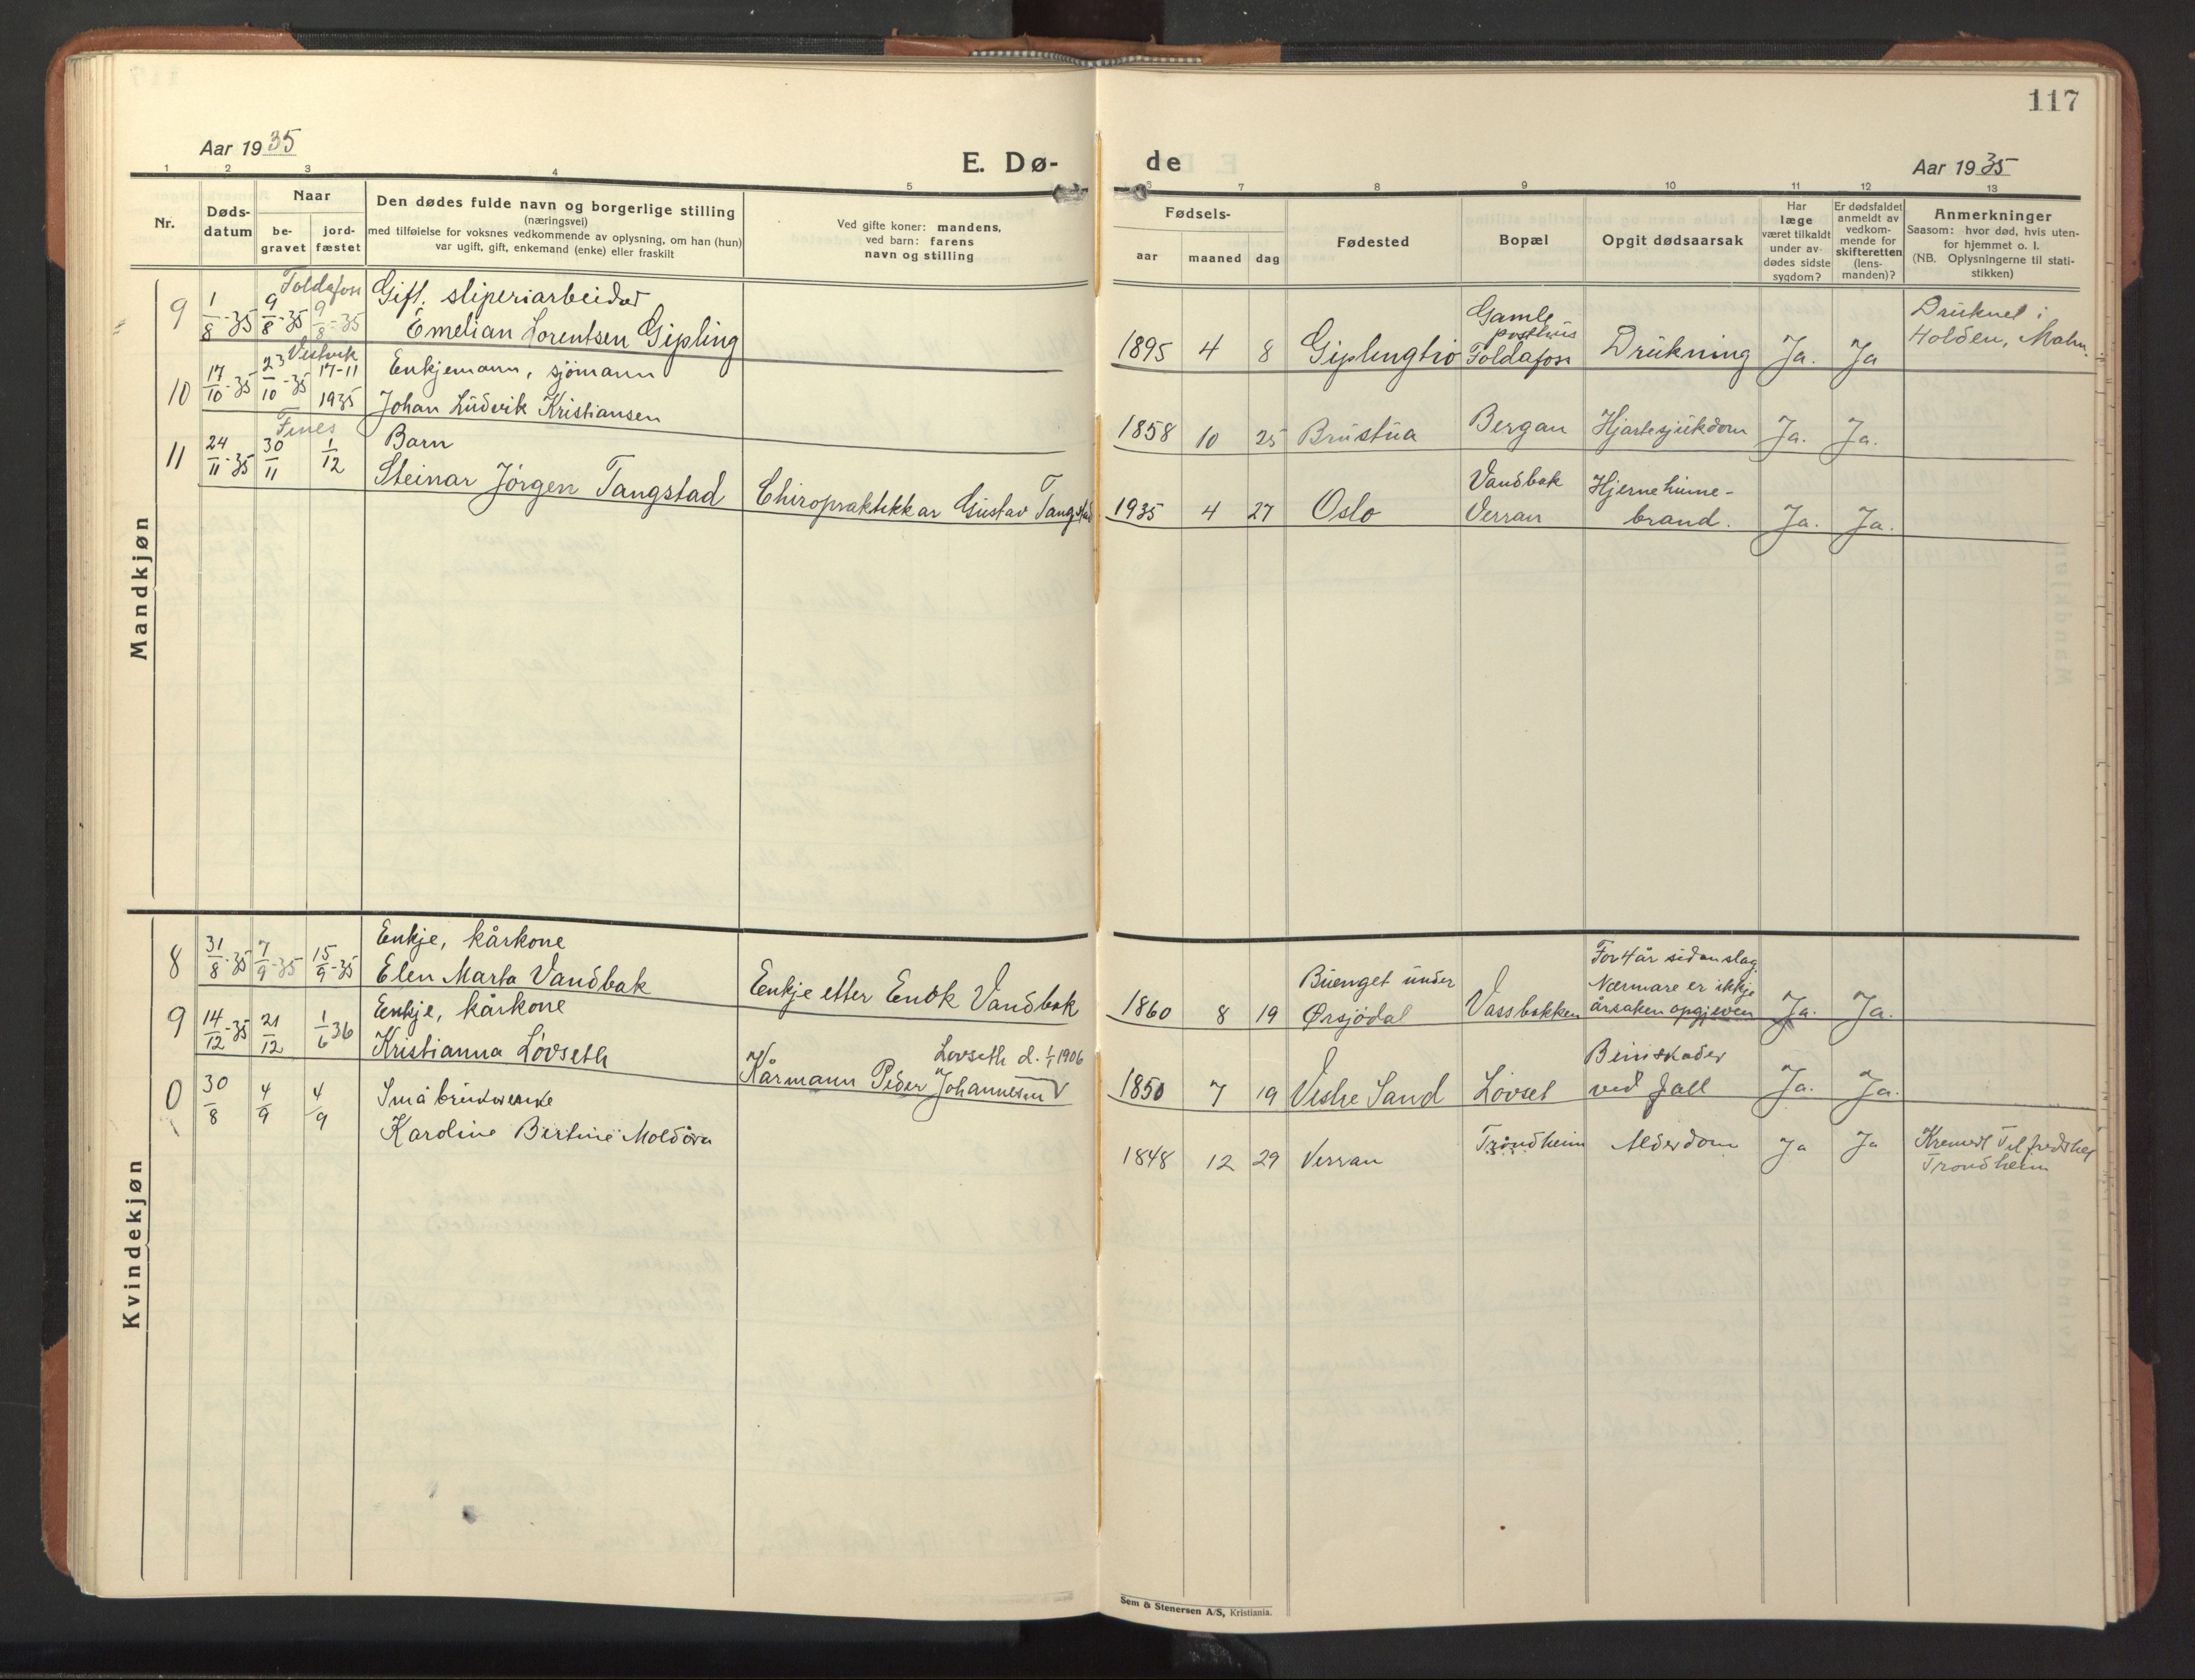 117
Aar 1935
E. Dø-
de
Aar 1935
1 2 3 4 5
6 7 8 9 10 11 12 13
Nr.
Døds-
datum
Naar
be-
gravet
jord-
fæstet
Den dødes fulde navn og borgerlige stilling
(næringsvei)
med tilføielse for voksnes vedkommende av oplysning, om han (hun)
var ugift, gift, enkemand (enke) eller fraskilt
Ved gifte koner: mandens,
ved barn: farens
navn og stilling
Fødsels-
aar
maaned
dag
Fødested
Bopæl
Opgit dødsaarsak
Har
læge
været tilkaldt
under av-
dødes sidste
sygdom?
Er dødsfaldet
anmeldt av
vedkom-
mende for
skifteretten
(lens-
manden)?
Anmerkninger
Saasom: hvor død, hvis uten-
for hjemmet o. l.
(NB. Oplysningerne til stati-
stikken)
Mandkjøn
Foldafoss
9
1/8-35
9/8-35
9/8-35
Gift. sliperiarbeidar
Emelian Lorentsen Gipling
1895 4 8
Giplingtrø
Gamle
posthus
Foldafoss
Drukning
Ja.
Ja
Druknet i
Holden, Malm.
Vestvik
10
17/10-35
23/10-35
17-11
1935
Enkjemann, sjömann
Johan Ludvik Kristiansen
1858 10 25
Brustua
Bergan
Hjartesjukdom
Ja.
Ja.
Fines
11
24/11-35
30/11
1/12
Barn
Steinar Jörgen Tangstad
Chiropraktikkar Gustav Tangstad
1935 4 27
Oslo
Vandbak
Verran
Hjernehinne-
brand.
Ja.
Ja.
Kvindekjøn
8
31/8-35
7/9-35
15/9-35
Enkje, kårkone
Elen Marta Vandbak
Enkje etter Enok Vandbak
1860 8 19
Buenget under
Ørsjödal
Vassbakken
For 4 år sidan slag.
Nærmare er ikkje
årsaken opgjeven
Ja.
Ja.
9
14/12-35
21/12
1/6 36
Enkje, kårkone
Kristianna Lövseth
Lovseth d. 1/1 1906
Kårmann Peder Johannesen
1850 7 19
Vestre Sand
Lövset
Beinskader
ved fall
Ja.
Ja.
0
30/8
4/9
4/9
Småbrukerenke
Karoline Bertine Moldöra
1848 12 29
Verran
Trondheim
Alderdom
Ja
Ja
Kremert Tilfredshet
Trondheim
Sem & Stenersen A/S, Kristiania.